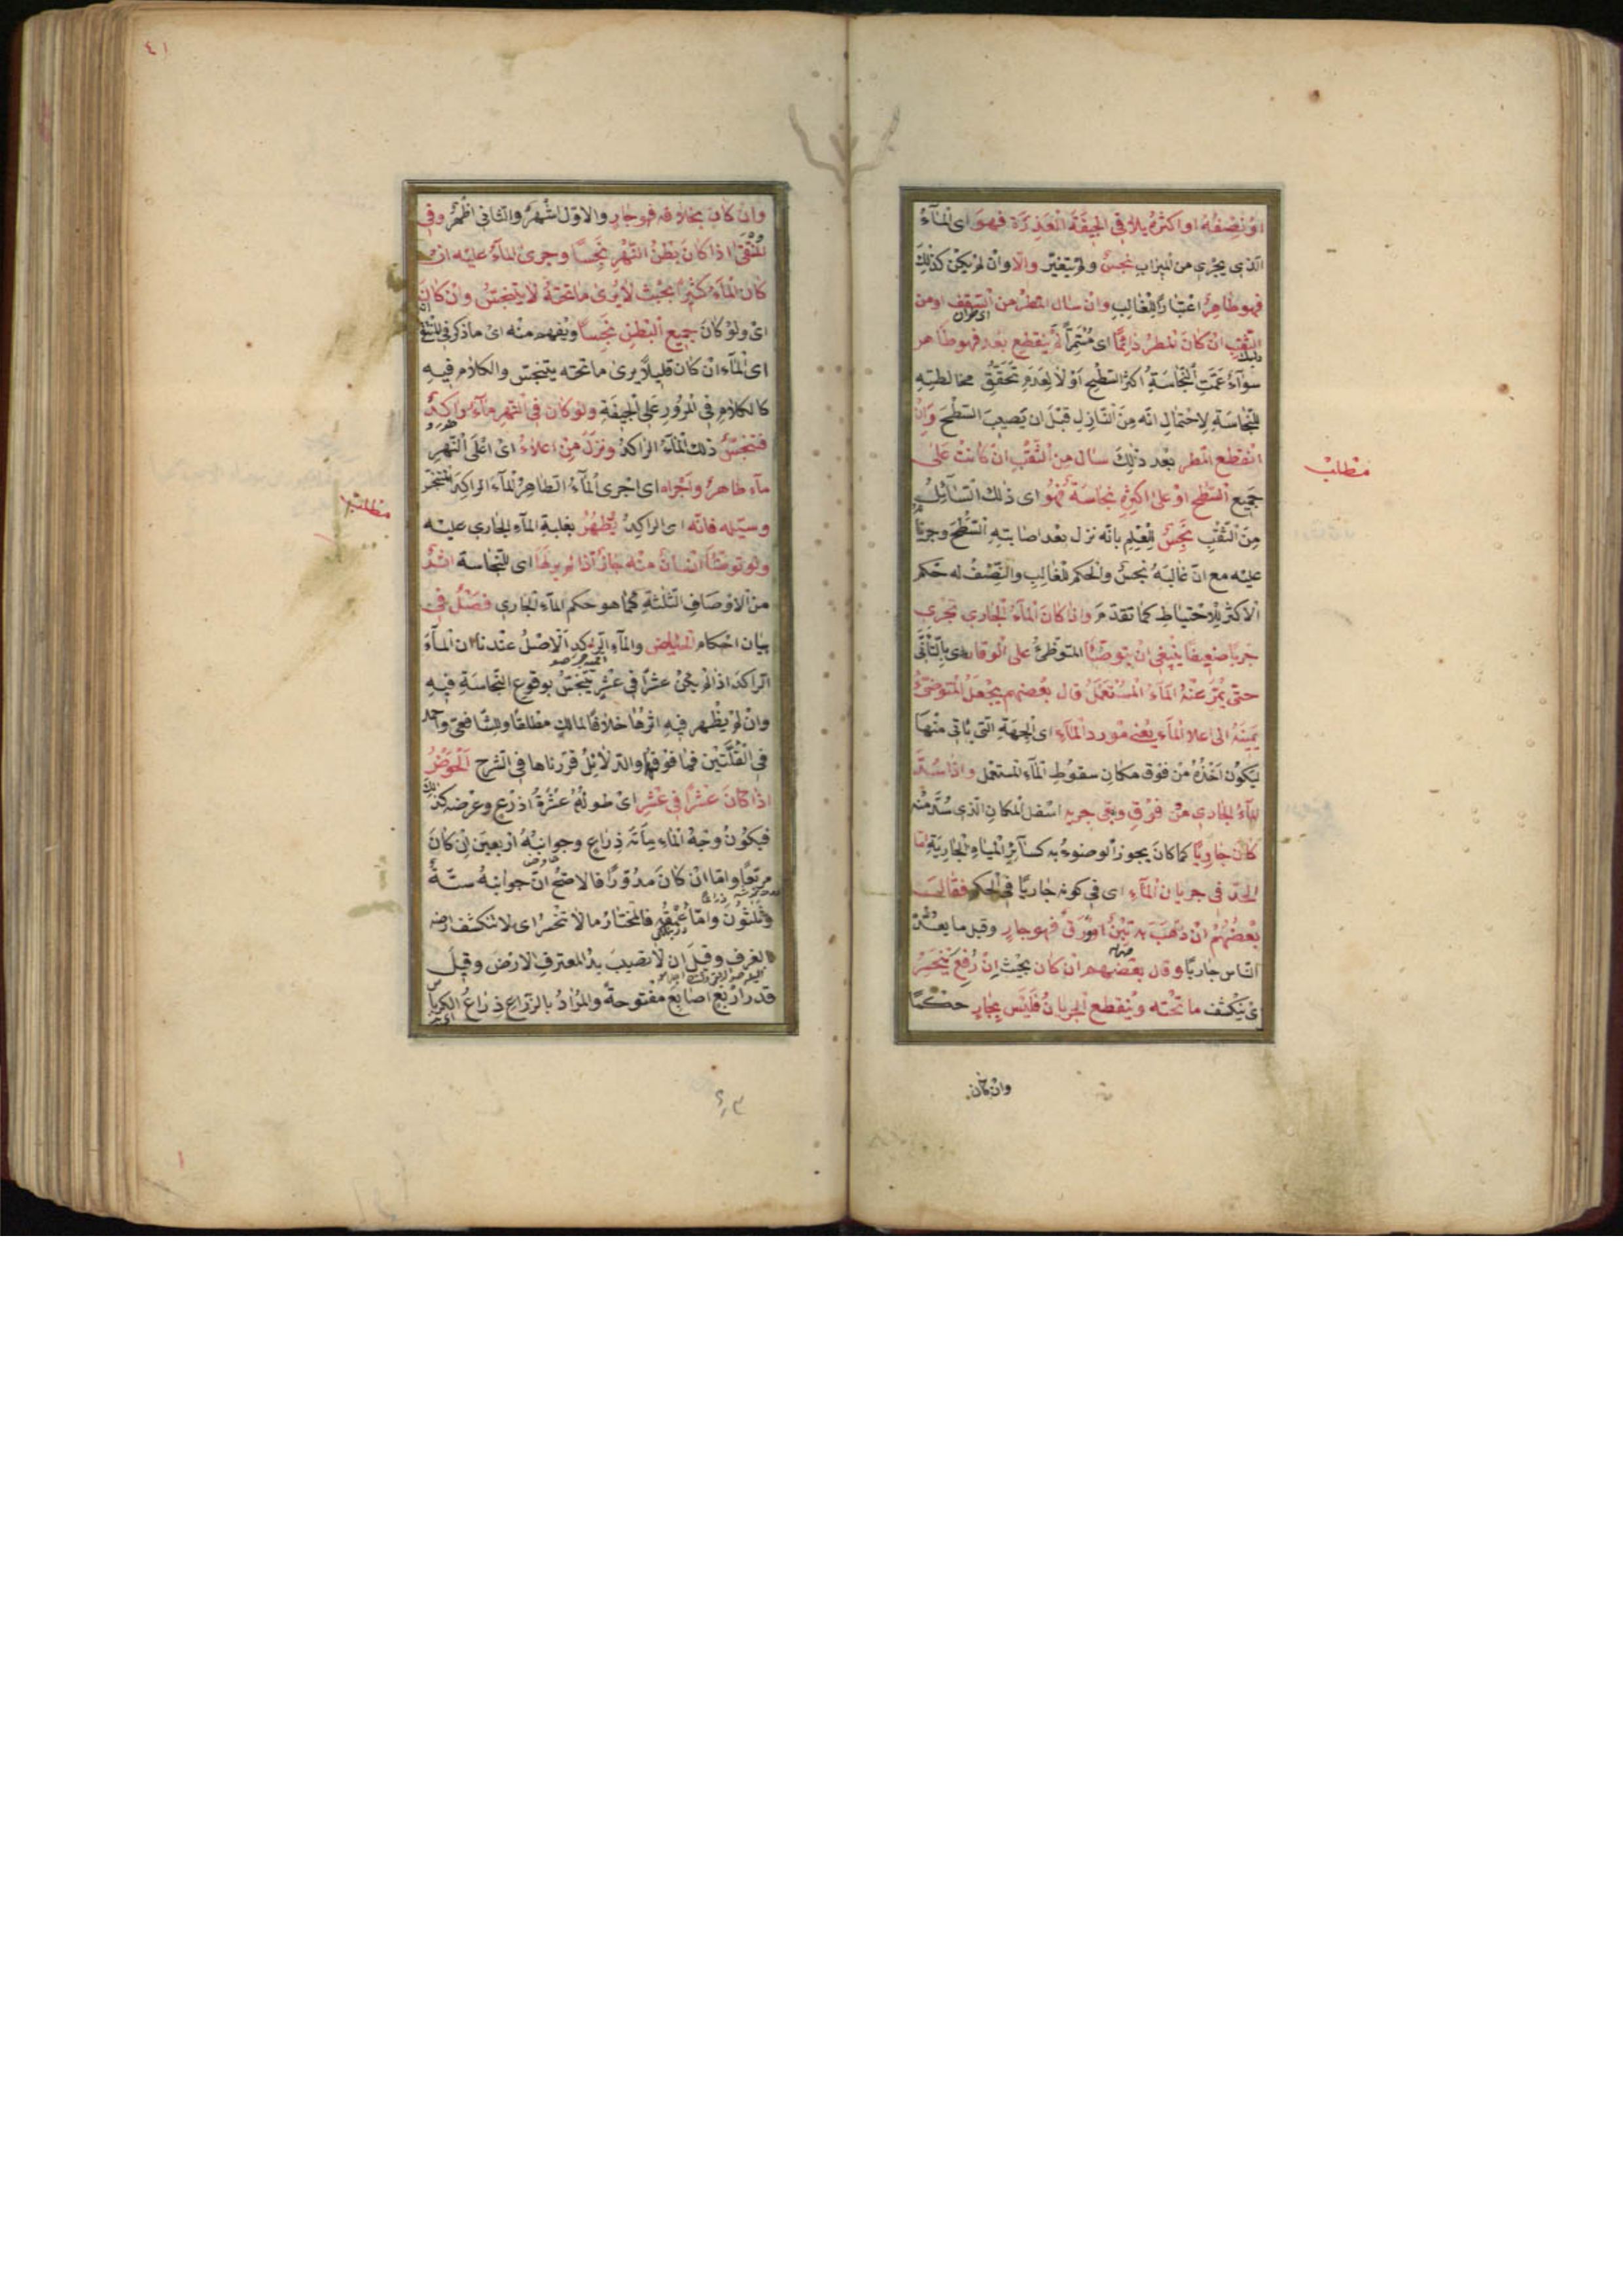 او نصفه او اكثره يلاقى الجيفة العذرة فهو اى المآء
الذى يجرى من الميزاب نجس ولم يتغير والّا وان لم يكن كذلك
فهو طاهر اعتبارا للغالب وان سال المطر من السقف او من
الثقب ان كان المطر دائما اى مستمرا لم ينقطع بعد فهو طاهر
سوآء عمّت النجاسة اكثر السطح او لا لعدم تحقق مخالطته
للنجاسة لاحتمال انه من النازل قبل ان يصيب السطح وان
انقطع المطر بعد ذلك سال من الثقب ان كانت على
جميع السطح او على اكثره نجاسة فهو اى ذلك السآئل
من الثقب نجس للعلم بانه نزل بعد اصابته السطح وجريا
عليه مع ان غالبه نجس والحكم للغالب والنصف له حكم
الاكثر للاحتياط كما تقدم واذا كان المآء الجارى يجرى
جريا ضعيفا ينبغى ان يتوضّأ المتوضئ على الوقار اى بالتأنّى
حتى يمرّ عنه المآء المستعمل قال بعضهم يجعل المتوضئ
يمينه الى اعلا المآء يعنى مورد المآء اى الجهة التى يأتى منها
ليكون اخذه من فوق مكان سقوط المآء المستعمل واذا سدّ
المآء الجارى من فوق وبقى جريه اسفل المكان الذى سدّ منه
كان جاريا كما كان يجوز الوضوء به كسآئر المياه الجارية امّا
الحدّ فى جريان المآء اى فى كونه جاريا فى الحكم فقال
بعضهم ان ذهب به تبن او ورق فهو جار وقيل ما يعدّه
الناس جاريا وقال بعضهم ان كان بحيث ان رفع ينحسر
اى ينكشف ما تحته وينقطع الجريان فليس بجار حكما
وان كان
مطلب
٤١
وان كان بخلافه فهو جار والاول اشهر والثانى اظهر وفى
الملتقى اذا كان بطن النهر نجسا وجرى المآء عليه ان
كان المآء كثيرا بحيث لا يرى ما تحته لا يتنجس وان كان
اى ولو كان جميع البطن نجسا ويفهم منه اى ما ذكر فى الملتقى
اى المآء ان كان قليلا يرى ما تحته يتنجس والكلام فيه
كالكلام فى المرور على الجيفة ولو كان فى النهر مآء راكد
فتنجس ذلك المآء الراكد ونزل من اعلاه اى اعلى النهر
مآء طاهر واجراه اى اجرى المآء الطاهر المآء الراكد المتنجس
وسيّله فانه اى الراكد يطهر بغلبة المآء الجارى عليه
ولو توضّأ انسان منه جاز اذا لم ير لها اى للنجاسة اثر
من الاوصاف الثلثة كما هو حكم المآء الجارى فصل فى
بيان احكام الحياض والمآء الراكد الاصل عندنا ان المآء
الراكد اذا لم يكن عشرا فى عشر يتنجس بوقوع النجاسة فيه
وان لم يظهر فيه اثرها خلافا لمالك مطلقا وللشافعى واحمد
فى القلتين فما فوقها والدلائل قررناها فى الشرح الحوض
اذا كان عشرا فى عشر اى طوله عشرة اذرع وعرضه كذلك
فيكون وجه المآء مأة ذراع وجوانبه اربعين ان كان
مربعا واما ان كان مدورا فالاصح ان جوانبه ستة
وثلثون واما عمقه فالمختار ما لا تنحسر اى لا تنكشف ارضه
بالغرف وقيل ان لا تصيب يد المغترف الارض وقيل
قدر اربع اصابع مفتوحة والمراد بالذراع ذراع الكرباس
مطلب